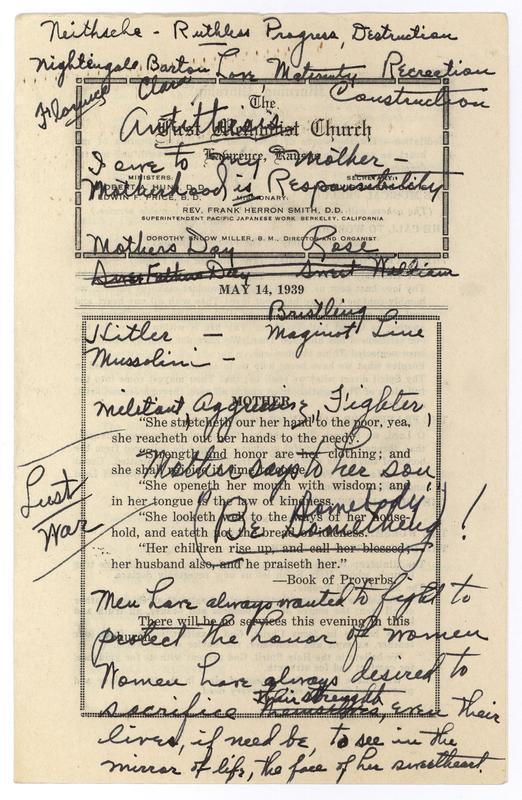 Neithsche - Ruthless Progress, Destruction
Nightengale, Barton Love, Maternity, Recreation
Florence Clara Construction
The
Antithesis
First Methodist Church
Lawrence, Kansas
I owe to my Mother -
MINISTERS:
Motherhood is Responsibility
EDWIN F. PRICE, B. D. MISSIONARY:
REV. FRANK HERRON SMITH, D.D.
SUPERINTENDENT PACIFIC JAPANESE WORK BERKELEY, CALIFORNIA
DOROTHY ENLOW MILLER, B. M., DIRECTOR AND ORGANIST
Mothers Day Rose
Fathers Day Sweet William
MAY 14, 1939
Bristling
Hitler - Maginot Line
Mussolini -
MOTHER
Militant, Aggressive, Fighter,
"She stretcheth our her hand to the poor, yea,
she reacheth out her hands to the needy.
"Strength and honor are her clothing; and
she shall rejoice in time to come.
Mother says to her son,
"She openeth her mouth with wisdom; and
in her tongue is the law of kindness.
Lust
War
Somebody
(Be Something)!
"She looketh well to the ways of her house-
hold, and eateth not the bread of idleness.
"Her children rise up, and call her blessed;
her husband also, and he praiseth her."
—Book of Proverbs.
Men have always wanted to fight to
There will be no services this evening in this
protect the honor of women
Women have always desired to
their strength
sacrifice themselves, even their
lives, if need be, to see in the
mirror of life, the face of her sweetheart.